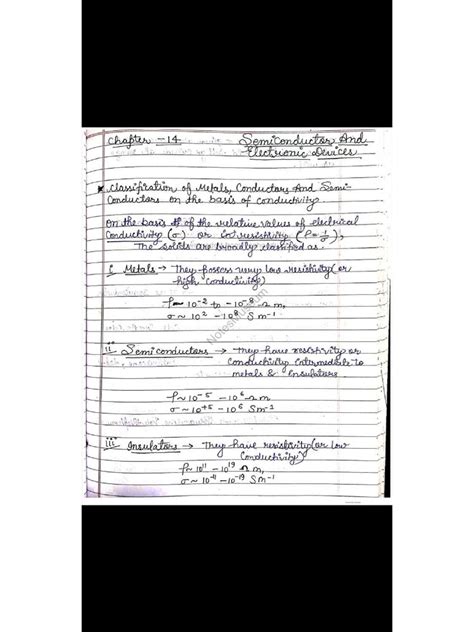 Chapter - 14 Semiconductor And
Electronic Devices
* Classification of Metals, Conductors And Semi-
Conductors on the basis of conductivity.
On the basis of the relative values of electrical
Conductivity (σ) or resistivity (ρ = 1/σ),
The solids are broadly classified as:
i Metals → They possess very low resistivity (or
high Conductivity)
ρ ~ 10⁻² to - 10⁻⁸ Ω m,
σ ~ 10² - 10⁸ Sm⁻¹
ii Semiconductors → They have resistivity or
Conductivity intermediate to
metals & Insulators.
ρ ~ 10⁻⁵ - 10⁶ Ω m
σ ~ 10⁺⁵ - 10⁶ Sm⁻¹
iii Insulators → They have resistivity (or low
Conductivity)
ρ ~ 10¹¹ - 10¹⁹ Ω m,
σ ~ 10⁻¹¹ - 10⁻¹⁹ Sm⁻¹